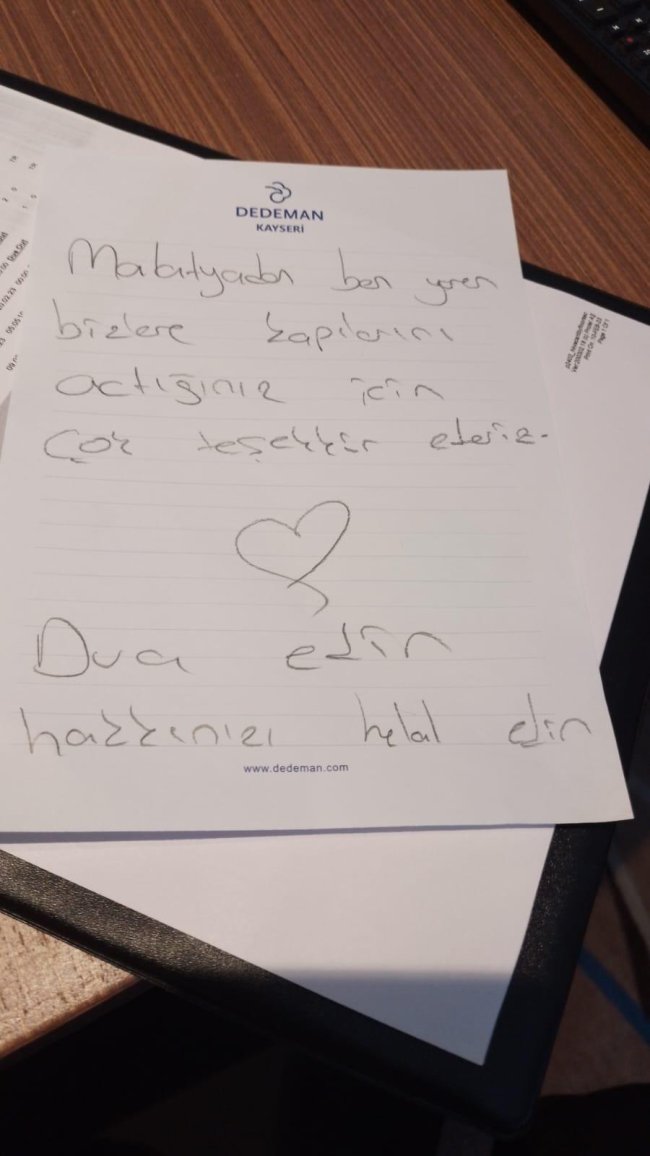 DEDEMAN
KAYSERİ
Malatyadan ben yeren
bizlere kapılarını
actığınız için
Çok teşekkür ederiz.
Dua edin
hakkınızı helal edin
www.dedeman.com
Page 1 Of 1